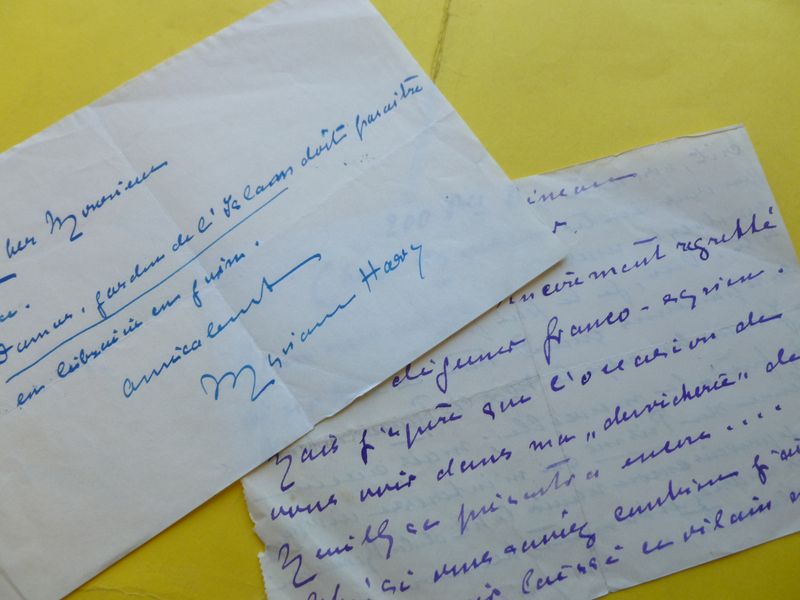 her Monsieur
Damas, jardin de l'Islam doit paraître
en librairie en juin.
amicalement
Myriam Harry
incèrement regretté
déjeuner franco-syrien.
Mais j'espère que l'occasion de
vous voir dans ma „dervicherie„ de
Neuilly se présentra encore....
si vous saviez combien j'ai
laissé ce vilain